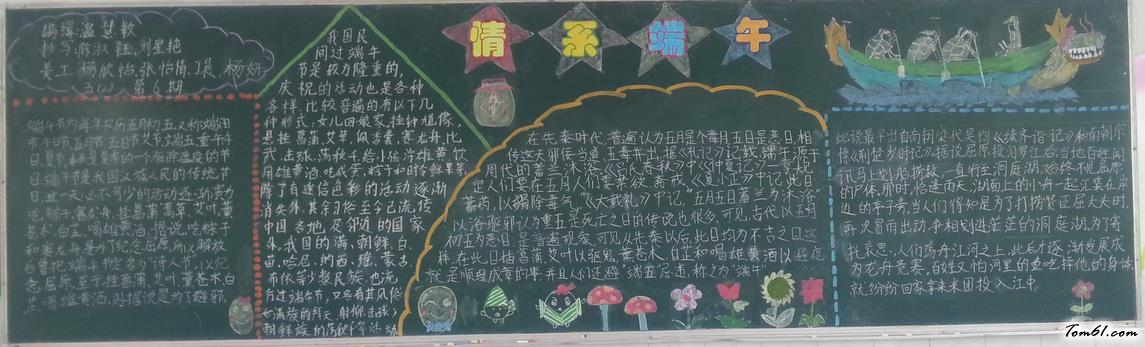 编辑:温慧敏
抄写:陈淑钰,刘星艳
美工:杨欣怡,张怡倩,丁晨,杨妍
五(2) 第6期
情系端午
端午节为每年农历五月初五,又称端阳
节午日节五月节五日节艾节端五重午午
日,夏节,本来是夏季的一个驱除瘟疫的节
日,端午节是我国汉族人民的传统节
日,这一天必不可少的活动逐渐演为
吃粽子,赛龙舟,挂菖蒲蒿草,艾叶,薰
苍术,白芷,喝雄黄酒。据说,吃粽子
和赛龙舟,是为了纪念屈原,所以解放
后曾把端午节定名为"诗人节",以纪
念屈原,至于挂菖蒲,艾叶,薰苍术,白
芷,喝雄黄酒,则据说是为了避邪。
我国民
间过端午
节是较为隆重的,
庆祝的活动也是各种
各样,比较普遍的有以下几
种形式:女儿回娘家,挂钟馗像,
悬挂菖蒲、艾草,佩香囊,赛龙舟,比
武,击球,荡秋千,给小孩涂雄黄,饮
用雄黄酒,吃咸蛋,粽子和时令鲜果等,
除了有迷信色彩的活动逐渐
消失外,其余习俗至今已流传
中国各地及邻近的国家
朱,我国的满,朝鲜,白,
苗,哈尼,纳西,彝,蒙古,
布依等少数民族,也流
有过端午节,又各有其风俗
如满族的拜天,射柳,击球,
朝鲜族的荡秋千等活动
在先秦时代,普遍认为五月是个毒月,五日是恶日,相
传这天邪佞当道,五毒并出。据《礼记》记载,端午源于
周代的蓄兰沐浴。《吕氏春秋》中《仲夏记》一章规
定人们在五月人们要禁欲,斋戒。《夏小正》中记:"此日
蓄药,以蠲除毒气。"《大戴礼》中记,"五月五日蓄兰为沐浴"
以浴驱邪认为重五是死亡之日的传说也很多。可见,古代以五月
初五为恶日,是普遍现象。可见从先秦以后,此日均为不吉之日。这
样,在此日插菖蒲,艾叶以驱鬼,薰苍术、白芷和喝雄黄酒以避疫
就是顺理成章的事。并且人们还避"端五"忌讳,称之为"端午"
此说最早出自南朝梁代吴均《续齐谐记》和南朝宗
懔《荆楚岁时记》。据说,屈原投汨罗江后,当地百姓闻
讯马上划船捞救,一直行至洞庭湖,始终不见屈原
的尸体。那时,恰逢雨天,湖面上的小舟一起汇集在岸
边的亭子旁。当人们得知是为了打捞贤臣屈大夫时,
再次冒雨出动,争相划进茫茫的洞庭湖。为了寄
托哀思,人们荡舟江河之上,此后才逐渐发展成
为龙舟竞赛。百姓又怕河里的鱼吃掉他的身体,
就纷纷回家拿来米团投入江中。
Tom61.com